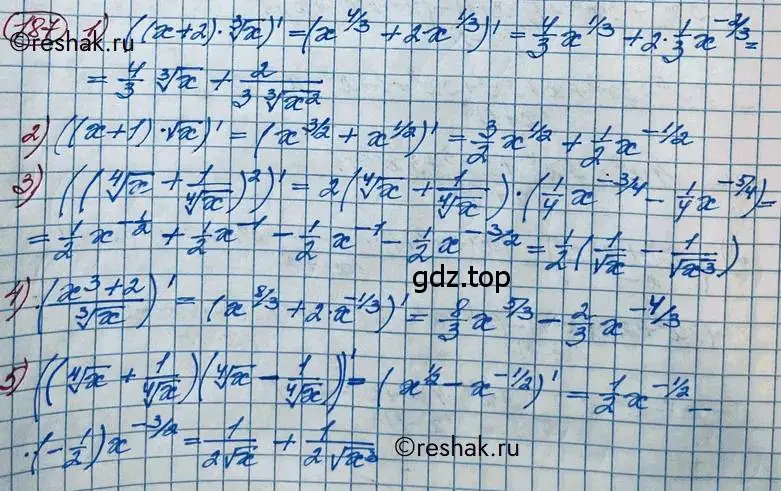 187 1) ((x+2)·∛x)' = (x^{4/3} + 2·x^{1/3})' = 4/3 x^{1/3} + 2·1/3 x^{-2/3} =
©reshak.ru
= 4/3 ∛x + 2/(3 ∛x²)
2) ((x+1)·√x)' = (x^{3/2} + x^{1/2})' = 3/2 x^{1/2} + 1/2 x^{-1/2}
3) ((∜x + 1/∜x)²)' = 2(∜x + 1/∜x)·(1/4 x^{-3/4} - 1/4 x^{-5/4}) =
= 1/2 x^{-1/2} + 1/2 x^{-1} - 1/2 x^{-1} - 1/2 x^{-3/2} = 1/2 (1/√x - 1/√x³)
gdz.top
4) ((x³+2)/∛x)' = (x^{8/3} + 2·x^{-1/3})' = 8/3 x^{5/3} - 2/3 x^{-4/3}
5) ((∜x + 1/∜x)(∜x - 1/∜x))' = (x^{1/2} - x^{-1/2})' = 1/2 x^{-1/2} -
·(-1/2) x^{-3/2} = 1/(2√x) + 1/(2√x³)
©reshak.ru